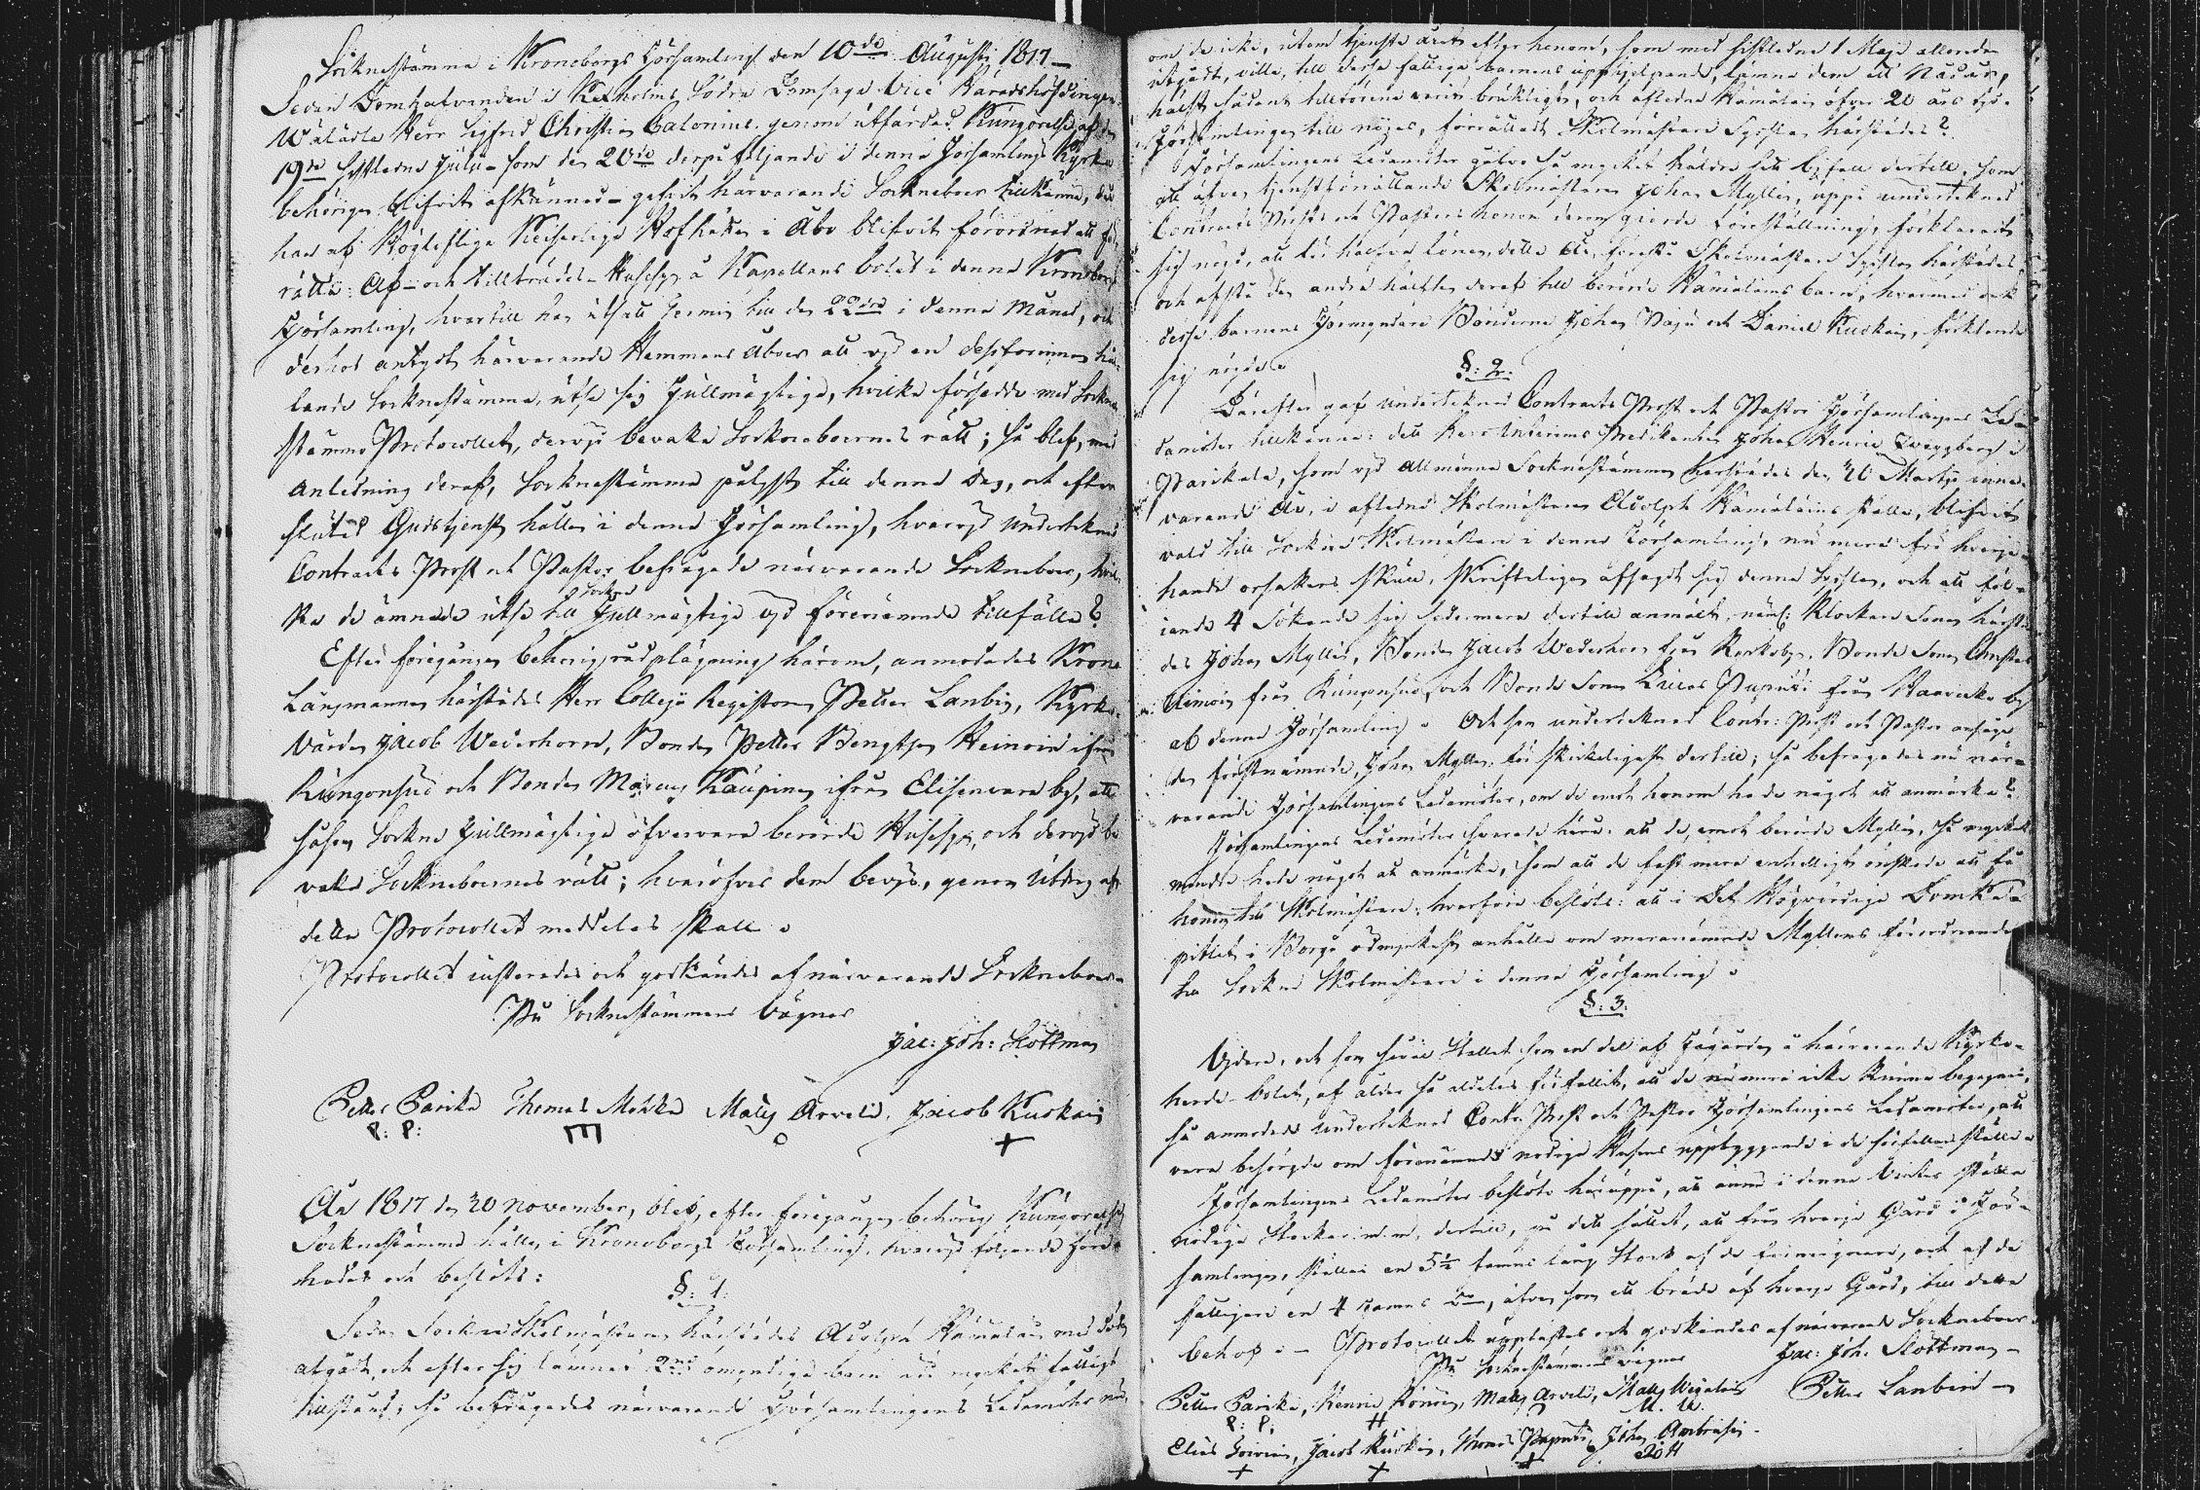 Socknestämma i Kronoborgs Församling den 10de Augusti 1817 —
Sedan Domhafvanden i Kexholms Södra Domsaga Vice Häradshöfdingen
Wälädle Herr Sigfrid Christian Calonius genom utfärdad Kungörelse af den
19de sistledne Julii – som den 20de derpå följande i denna Församlings Kyrka
behörigen blifvit afkunnad – gifvit härvarande Sockneboer tillkänna, det
han af Höglofliga Keiserliga Hofrätten i Åbo blifvit förordnad att för-
rätta Af- och tilträdes- Husesyn å Kapellans bolet i denna Kronoborgs
Församling, hvartill han utsatt Termin till den 22dra i denna Månad, och
derhos antydt härvarande Hemmans Åboer att vid en dessförinnan hål-
lande Socknestämma, utse sig Fullmägtige, hvilka försedde med Sockne-
stämmo Protocollet, dervid bevaka Socknboernes rätt; så blef, med
anledning deraf, Socknestämma pålyst till denna Dag, och efter
slutad Gudstjenst hållen i denna Församling, hvarvid Undertecknad
Contracts Prost och Pastor befrågade närvarande Socknboer, hvil-
ka de ämnade utse till Sockne Fullmägtige vid förenämnde tillfälle?
Efter föregången behörig rådplägning härom, anmodades Krono
Länsmannen härstädes Herr Collegii Registrator Petter Lanbin, Kyrko-
Värden Jacob Wederhorn, Bonden Petter Bengtsson Heinoin ifrån
Kungonsuo och Bonden Marcus Kaupinen ifrån Elisenvara by, att
såsom Sockne Fullmägtige öfvervara berörde Husesyn, och dervid be-
vaka Sockneboernes rätt; hvaröfver dem bevis, genom Utdrag af
detta Protocollet meddelas skall.
Protocollet justerades och godkändes af närvarande Sockneboer.
På Socknestämmans Vägnar
Jac: Joh: Slottman
Petter Parika Thomas Mokka Matts Arvela. Jacob Kuokain
P: P:
År 1817 den 30 November, blef, efter föregången behörig Kungörelse
Socknestämma hållen i Kronoborgs Församling, hvarvid följande före-
hades och beslöts:
§: 1.
Sedan Sockne Skolmästaren härstädes Adolph Hämäläin med döden
afgådt, och efter sig lämnat 2ne omyndiga barn uti mycket fattigt
tillstånd; så befrågades närvarande Församlingens Ledamöter nu,
om de icke, utom tjenste året efter honom, som med sistledne 1 Maji allaredan
utgådt, ville, till dessa fattiga barnens upphjelpande, lämna dem ett Nådår,
hälst sådant tillförene varit brukligt, och afledne Hämäläin öfver 20 års tid,
Församlingen till nöjes, förrättadt Skolmästare Sysslan härstädes?
Församlingens Ledamöter gåfvo så mycket hällre sitt bifall dertill, som
att äfven tjenstförrättande Skolmästaren Johan Myllin, uppå undertecknad
Contracts Prosts och Pastors honom derom gjorde föreställning, förklarade
sig nögd, att för halfva lönen detta År, förestå Skolmästare Sysslan härstädes,
och afstå den andra hälften deraf till berörde Hämäläins barn, hvarmed ock
dessa barnens Förmyndare Bönderne Johan Paju och Daniel Kuokain, förklarade
sig nögde.
§: 2.
Därefter gaf Undertecknad Contracts Prost och Pastor Församlingens Le-
damöter tillkänna: det Herr Interims Predikanten Johan Henric Zweggberg i
Parikala, som vid Allmänna Socknestämman härstädes den 30 Martii inne-
varande År, i afledne Skolmästaren Adolph Hämäläins ställe, blifvit
vald till Sockne Skolmästare i denna Församling, nu mera för hvarje-
handa orsakers skull, skrifteligen afsagdt sig denna Sysslan, och att föl-
jande 4 Sökande sig sedermera dertill anmält, näml: Klockare Sonen härstä-
des Johan Myllin, Bonden Jacob Wederhorn från Korkoby, Bonde Sonen Christer
Aimoin från Kungonsuo, och Bonde Sonen Lucas Puputti från Haavicko by
af denna Församling. Och som undertecknad Contr: Prost och Pastor ansåge
den förstnämnde, Johan Myllin, för skickeligast dertill; så befrågades nu när-
varande Församlingens Ledamöter, om de emot honom hade något att anmärka?
Församlingens Ledamöter svarade härå: att de, emot berörde Myllin, så mycket
mindre hade något att anmärka, som att de fast mera enhälligt önskade att få
honom till Skolmästare; hvarföre beslöts: att i Det Högvördige Domka-
pitlet i Borgå ödmjukast anhålla om meranämnde Myllins förordnande
till Sockne Skolmästare i denna Församling.
§: 3.
Vidare, och som såväl Stallet som en del af Fägården å härvarande Kyrko-
herde-bolet, af ålder så aldeles förfallit, att de nu mera icke kunna begagnas,
så anmodade Undertecknad Contr. Prost och Pastor Församlingens Ledamöter, att
vara besörgde om förenämnde nödige Husens uppbyggande i de förfallnas ställe.
Församlingens Ledamöter beslöto häruppå, att ännu i denna Vinter ställa
nödige Stockar m. m. dertill, på det sättet, att från hvarje Gård i För-
samlingen, ställas en 5½ famns lång Stock af de förmögnare, och af de
fattigare en 4 Famns D:o, äfven som ett bräde af hvarje Gård, till detta
behof. — Protocollet upplästes och godkändes af närvarande Sockneboer.
På Socknestämmans vägnar Jac: Joh: Slottman —
Petter Parika, Henric Könöin, Matts Arvela, Matts Wepsäläin Petter Lanbin —
P: P: H M. W.
Elias Toivoin, Jacob Kuokain, Thomas Puputti, Johan Ambrosin.